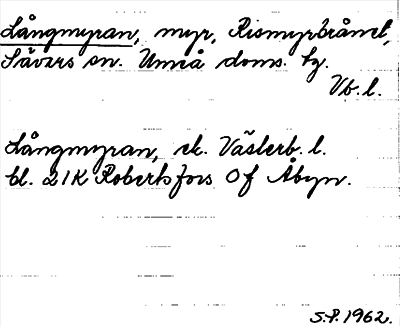 Långmyran, myr, Rismyrbrånet,
Sävars sn. Umeå doms. hg.
Vb. l.
Långmyran, ek. Västerb. l.
bl. 21K Robertsfors 0f Åbyn.
S.P. 1962.